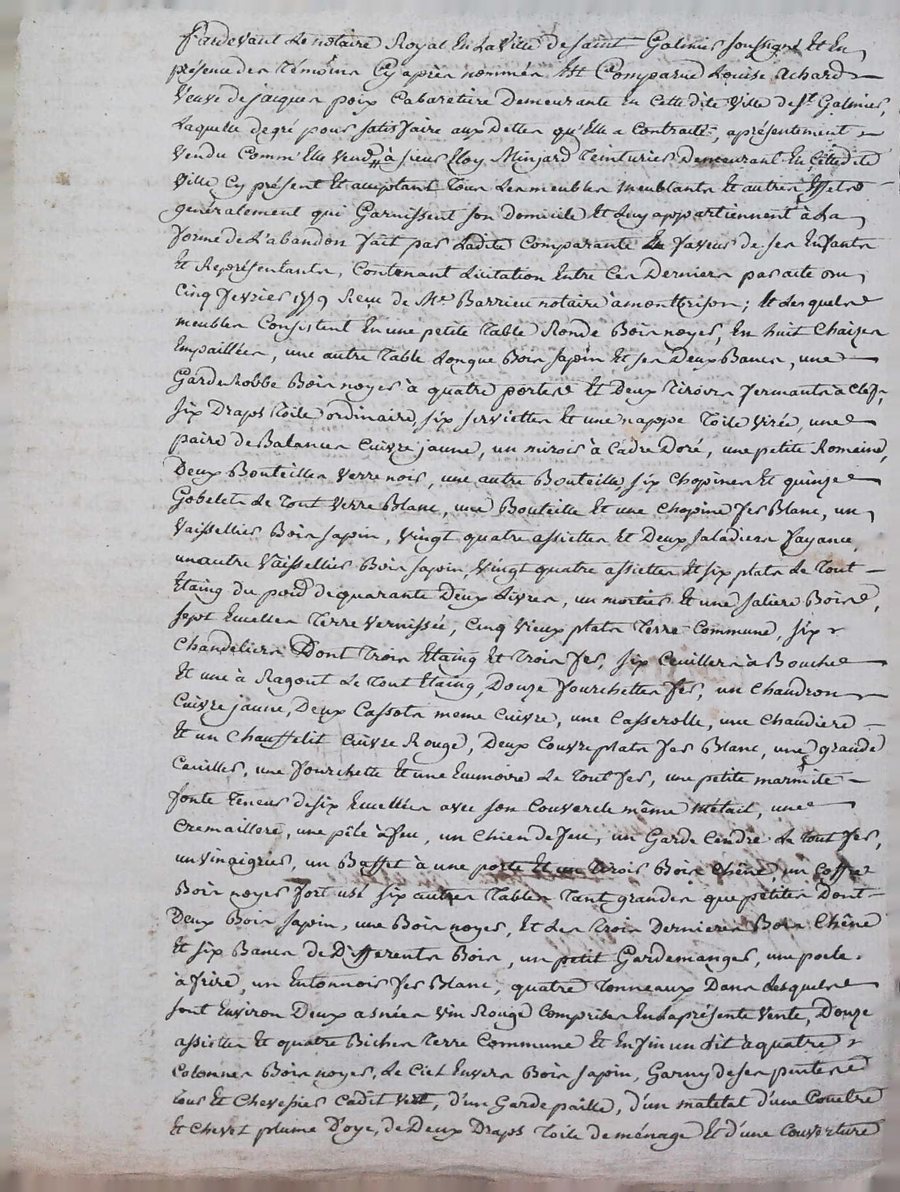 Pardevant Le notaire Royal En La Ville de saint Galmier soussigné Et En
présence des Témoins Cy après nommés Est Comparue Louise achard
Veuve de jacques poix Cabaretiere Demeurante En Cette dite Ville de St. Galmier,
Laquelle de gré pour satisfaire aux Dettes qu'Elle a Contraité, aprésentement
Vendu Comm'Elle Vend à sieur Eloy Minjard Teinturier Demeurant En Cette dite
Ville Cy présent Et acceptant Tous Les meubles meublants Et autres Effets
generalement qui Garnissent son Domicile Et Luy appartiennent à La
forme de L'abandon fait par Ladite Comparante En faveur de ses Enfants
Et Représentants, Contenant Licitation Entre Ces Derniers par acte du
Cinq fevrier 1779 Reçu de Me. Barrieu notaire à montbrison; Et Lesquels
meubles Consistent En une petite Table Ronde Bois noyer, En huit Chaises
Empaillées, une autre Table Longue Bois sapin Et ses Deux Bancs, une
GardeRobbe Bois noyer à quatre portes Et Deux Tirois fermants à Clef,
six Draps Toile ordinaire, six serviettes Et une nappe Toile Virée, une
paire de Balances Cuivre jaune, un mirois à Cadre Doré, une petite Romaine,
Deux Bouteilles Verre noir, une autre Bouteille six Chopines Et quinze
Gobelets Le Tout Verre Blanc, une Bouteille Et une Chopine fer Blanc, un
Vaissellier Bois sapin, Vingt quatre assiettes Et Deux saladiers fayance,
un autre Vaissellier Bois sapin, Vingt quatre assiettes Et six plats Le Tout
Etaing du poid de quarante Deux Livres, un mortier Et une saliere Bois,
sept Ecuelles Terre Vernissée, Cinq Vieux plats Terre Commune, six
Chandeliers Dont Trois Etaing Et Trois fer, six Ceuillers à Bouche
Et une à Ragout Le Tout Etaing, Douze fourchettes fer, un Chaudron
Cuivre jaune, Deux Cassots meme Cuivre, une Casserolle, une Chaudiere
Et un Chauffelit Cuivre Rouge, Deux Couvreplats fer Blanc, une grande
Ceuiller, une fourchette Et une Ecumoire Le Tout fer, une petite marmite
fonte Teneur de six Ecuellées avec son Couvercle même métail, une
Cremaillere, une pêle à feu, un Chien de feu, un Garde Cendre Le Tout fer,
un Vinaigrier, un Baffet à une porte Et un Tirois Bois Chêne, un Coffre
Bois noyer fort usé six autres Tables Tant grandes que petites Dont
Deux Bois sapin, une Bois noyer, Et Les Trois Dernieres Bois Chêne
Et six Bancs de Différents Bois, un petit Gardemanger, une poele
à frire, un Entonnois fer Blanc, quatre Tonneaux Dans Lesquels
sont Environ Deux asnées Vin Rouge Comprises En La présente Vente, Douze
assiettes Et quatre Biches Terre Commune Et Enfin un Lit à quatre
Colonnes Bois noyer, Le Ciel Envers Bois sapin, Garny de ses pentes
tour Et Chevesier Cadit Vert, d'un Gardepaille, d'un matelat d'une Couetre
Et Chevet plume D'oye, de Deux Draps Toile de ménage Et d'une Couverture